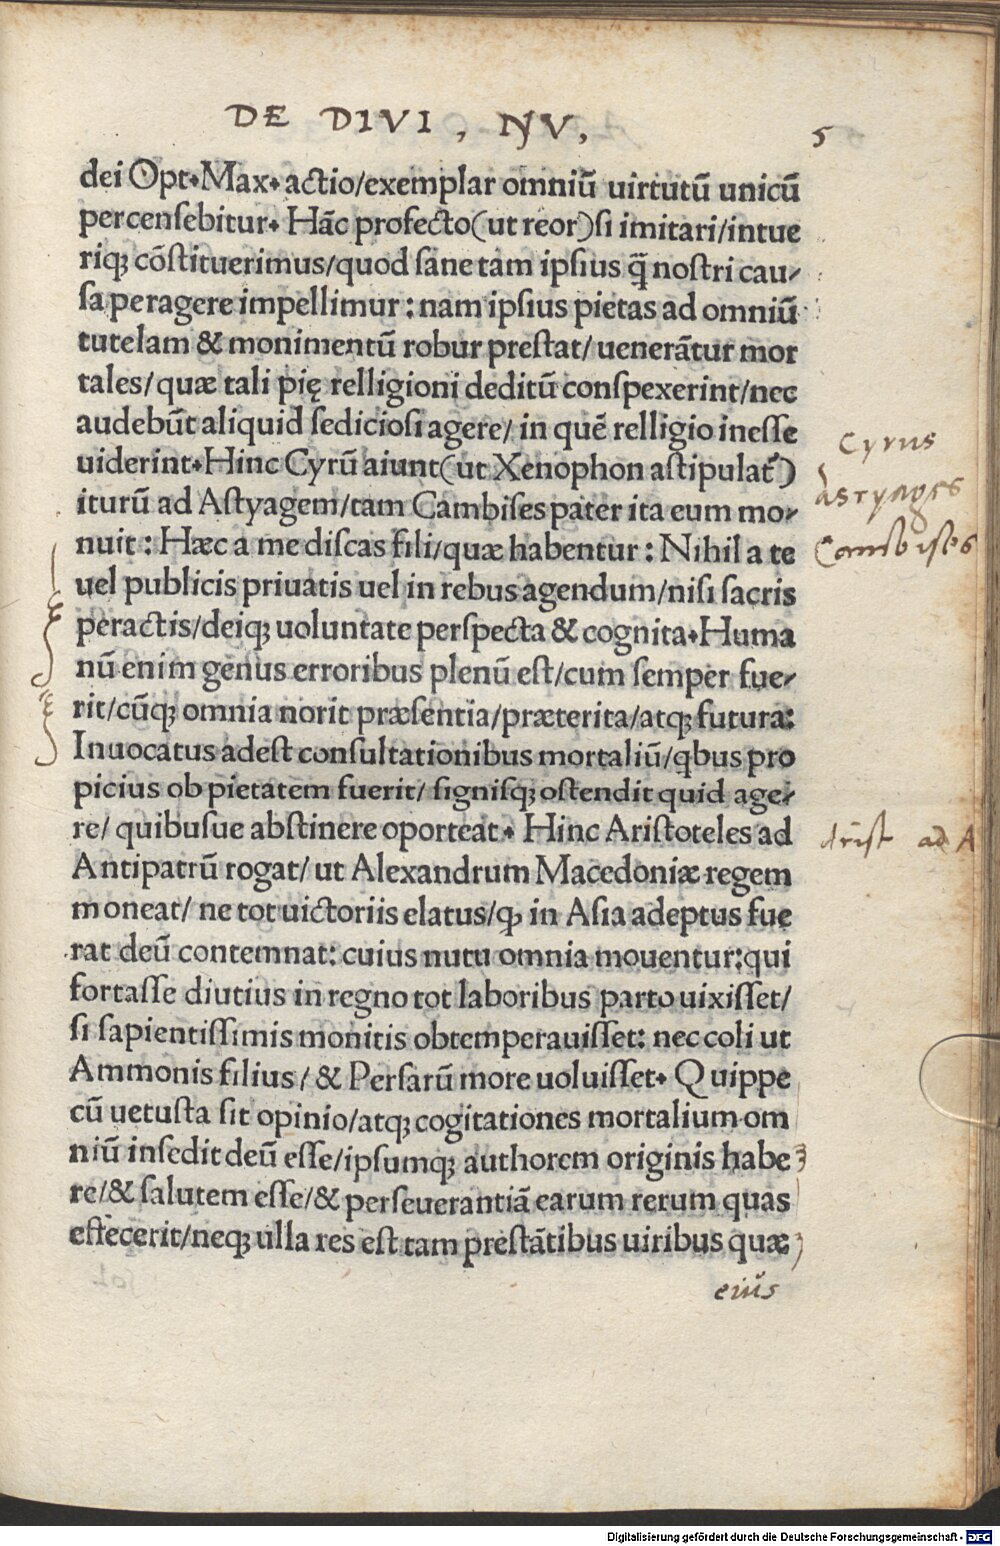 DE DIVI, NV,
5
dei Opt•Max• actio/exemplar omniū uirtutū unicū
percensebitur• Hāc profecto(ut reor)si imitari/intue
riqꝫ cōstituerimus/quod sane tam ipsius q̄ nostri cau-
sa peragere impellimur: nam ipsius pietas ad omniū
tutelam & monimentū robur prestat/ uenerātur mor
tales/quæ tali pię relligioni deditū conspexerint/nec
audebūt aliquid sediciosi agere/ in quē relligio inesse
Cyrus
uiderint•Hinc Cyrū aiunt(ut Xenophon astipulat᷑)
Astyages
iturū ad Astyagem/tam Cambises pater ita eum mo-
nuit: Hæc a me discas fili/quæ habentur: Nihil a te
Cambises
uel publicis priuatis uel in rebus agendum/nisi sacris
peractis/deiqꝫ uoluntate perspecta & cognita•Huma
nū enim genus erroribus plenū est/cum semper fue-
rit/cūqꝫ omnia norit præsentia/præterita/atqꝫ futura:
Inuocatus adest consultationibus mortaliū/qbus pro
picius ob pietatem fuerit/ signisqꝫ ostendit quid age-
re/ quibusue abstinere oporteat• Hinc Aristoteles ad
Arist ad A
Antipatrū rogat/ ut Alexandrum Macedoniæ regem
moneat/ ne tot uictoriis elatus/ꝙ in Asia adeptus fue
rat deū contemnat: cuius nutu omnia mouentur:qui
fortasse diutius in regno tot laboribus parto uixisset/
si sapientissimis monitis obtemperauisset: nec coli ut
Ammonis filius/ & Persarū more uoluisset• Quippe
cū uetusta sit opinio/atqꝫ cogitationes mortalium om
niū insedit deū esse/ipsumqꝫ authorem originis habe
re/& salutem esse/& perseuerantiā earum rerum quas
effecerit/neqꝫ ulla res est tam prestātibus uiribus quæ
eius
Digitalisierung gefördert durch die Deutsche Forschungsgemeinschaft - DFG